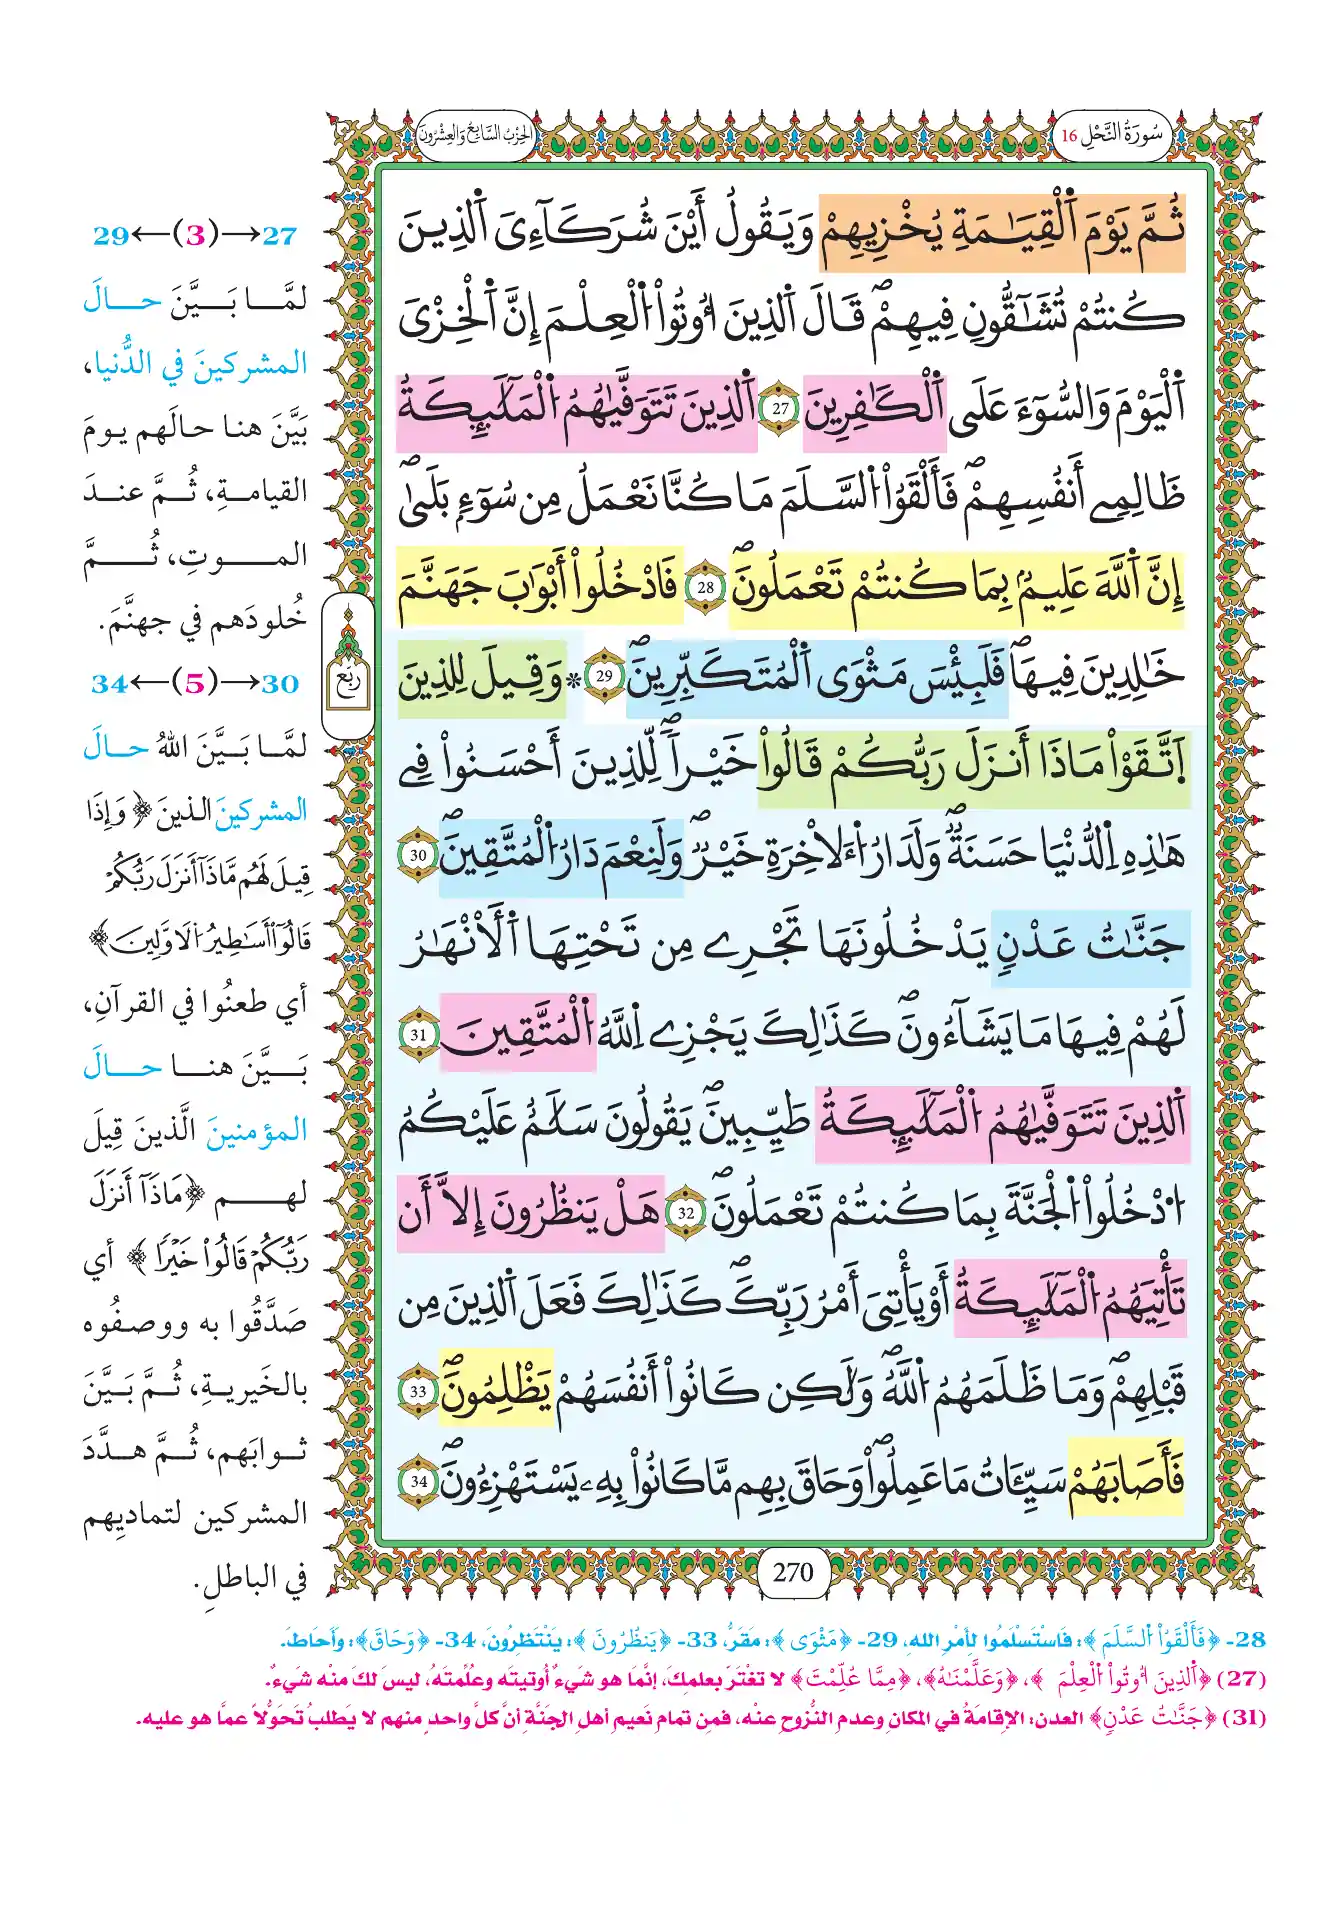 سُورَةُ النَّحْلِ 16
الحِزْبُ السَّابِعُ وَالعِشْرُونَ
ثُمَّ يَوْمَ اَ۬لْقِيَٰمَةِ يُخْزِيهِمْ وَيَقُولُ أَيْنَ شُرَكَآءِىَ اَ۬لذِينَ
كُنتُمْ تُشَٰٓقُّونِ فِيهِمْۖ قَالَ اَ۬لذِينَ أُوتُواْ اُ۬لْعِلْمَ إِنَّ اَ۬لْخِزْىَ
اَ۬لْيَوْمَ وَالسُّوٓءَ عَلَى اَ۬لْكَٰفِرِينَ 27 اَ۬لذِينَ تَتَوَفَّيٰهُمُ اُ۬لْمَلَٰٓئِكَةُ
ظَالِمِے أَنفُسِهِمْۖ فَأَلْقَوُاْ اُ۬لسَّلَمَ مَا كُنَّا نَعْمَلُ مِن سُوٓءِۢ بَلَىٰٓۖ
إِنَّ اَ۬للَّهَ عَلِيمُۢ بِمَا كُنتُمْ تَعْمَلُونَۖ 28 فَادْخُلُواْ أَبْوَٰبَ جَهَنَّمَ
خَٰلِدِينَ فِيهَاۖ فَلَبِئْسَ مَثْوَى اَ۬لْمُتَكَبِّرِينَۖ 29 * وَقِيلَ لِلذِينَ
اَ۪تَّقَوْاْ مَاذَا أَنزَلَ رَبُّكُمْ قَالُواْ خَيْراٗۖ لِّلذِينَ أَحْسَنُواْ فِے
هَٰذِهِ اِ۬لدُّنْيَا حَسَنَةٞۖ وَلَدَارُ اُ۬لَاخِرَةِ خَيْرٞۖ وَلَنِعْمَ دَارُ اُ۬لْمُتَّقِينَۖ 30
جَنَّٰتُ عَدْنٖ يَدْخُلُونَهَا تَجْرِے مِن تَحْتِهَا اَ۬لْأَنْهَٰرُ
لَهُمْ فِيهَا مَا يَشَآءُونَۖ كَذَٰلِكَ يَجْزِے اِ۬للَّهُ اُ۬لْمُتَّقِينَ 31
اَ۬لذِينَ تَتَوَفَّيٰهُمُ اُ۬لْمَلَٰٓئِكَةُ طَيِّبِينَۖ يَقُولُونَ سَلَٰمٌ عَلَيْكُمُ
اُ۟دْخُلُواْ اُ۬لْجَنَّةَ بِمَا كُنتُمْ تَعْمَلُونَۖ 32 هَلْ يَنظُرُونَ إِلَّا أَن
تَأْتِيَهُمُ اُ۬لْمَلَٰٓئِكَةُ أَوْ يَأْتِىَ أَمْرُ رَبِّكَۖ كَذَٰلِكَ فَعَلَ اَ۬لذِينَ مِن
قَبْلِهِمْۖ وَمَا ظَلَمَهُمُ اُ۬للَّهُۖ وَلَٰكِن كَانُواْ أَنفُسَهُمْ يَظْلِمُونَۖ 33
فَأَصَابَهُمْ سَيِّـَٔاتُ مَا عَمِلُواْۖ وَحَاقَ بِهِم مَّا كَانُواْ بِهِۦ يَسْتَهْزِءُونَۖ 34
رُبْع
270
27→(3)←29
لمَّا بَيَّنَ حالَ
المشركينَ في الدُّنيا،
بَيَّنَ هنا حالَهم يومَ
القيامةِ، ثُمَّ عندَ
الموتِ، ثُمَّ
خُلودَهم في جهنَّمَ.
30→(5)←34
لمَّا بَيَّنَ اللهُ حالَ
المشركينَ الذينَ ﴿وَإِذَا
قِيلَ لَهُم مَّاذَآ أَنزَلَ رَبُّكُمْ
قَالُوٓاْ أَسَاطِيرُ الَاوَّلِينَ﴾
أي طعنُوا في القرآنِ،
بَيَّنَ هنا حالَ
المؤمنينَ الَّذينَ قِيلَ
لهم ﴿مَاذَآ أَنزَلَ
رَبُّكُمْ قَالُواْ خَيْرًا﴾ أي
صَدَّقُوا به ووصفُوه
بالخَيريةِ، ثُمَّ بَيَّنَ
ثوابَهم، ثُمَّ هدَّدَ
المشركين لتماديِهم
في الباطلِ.
28- ﴿فَأَلْقَوُاْ اُ۬لسَّلَمَ﴾: فَاسْتَسْلَمُوا لِأَمْرِ اللهِ، 29- ﴿مَثْوَى﴾: مَقَرُّ، 33- ﴿يَنظُرُونَ﴾: يَنْتَظِرُونَ، 34- ﴿وَحَاقَ﴾: وَأَحَاطَ.
(27) ﴿اَ۬لذِينَ أُوتُواْ اُ۬لْعِلْمَ﴾، ﴿وَعَلَّمْنَٰهُ﴾، ﴿مِمَّا عُلِّمْتَ﴾ لا تغْتَرَّ بعلمِكَ، إنَّما هو شَيءٌ أُوتيتَه وعُلِّمتَهُ، ليسَ لكَ منْه شَيءٌ.
(31) ﴿جَنَّٰتُ عَدْنٖ﴾ العدن: الإقامَةُ في المكانِ وعدم النُّزوحِ عنْه، فمِن تمام نَعيمِ أهلِ الجنَّةِ أن كلَّ واحدٍ منهم لا يَطلبُ تَحوُّلاً عمَّا هو عليه.